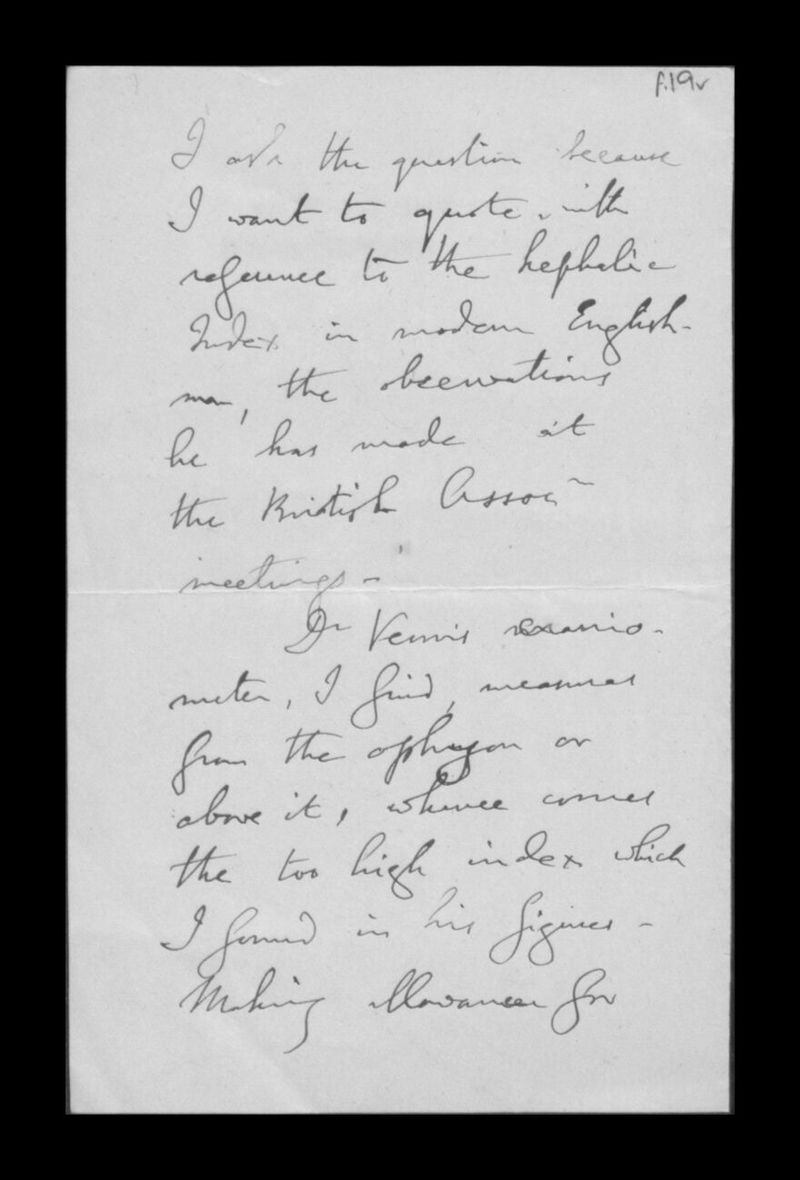 f.19v
I ask the question because
I want to quote, with
reference to the kephalic
Index in modern English-
man, the observations
he has made at
the British Assocn
meetings -
Dr Venn's cranio-
meter, I find, measures
from the ophryon or
above it, whence comes
the too high index which
I found in his figures -
Making allowances for